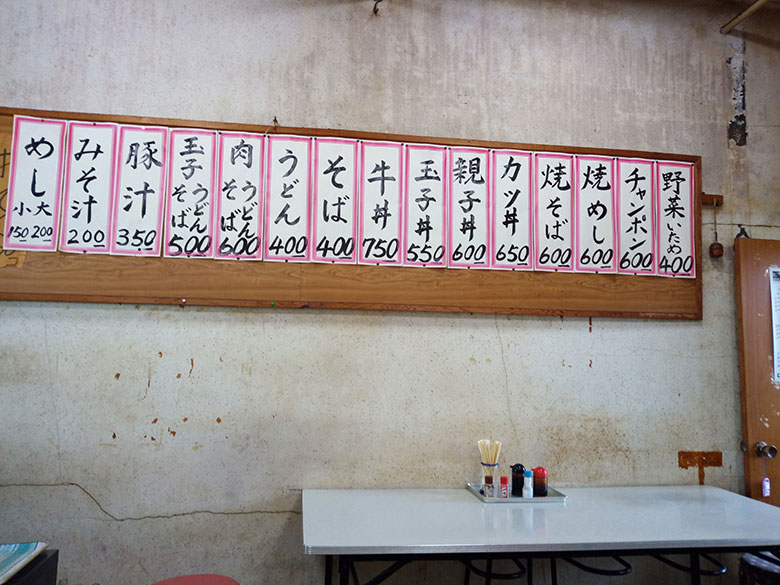 野菜いため
400
チャンポン
600
焼めし
600
焼そば
600
カツ丼
650
親子丼
600
玉子丼
550
牛丼
750
そば
400
うどん
400
肉
うどん
そば
600
玉子
うどん
そば
500
豚汁
350
みそ汁
200
めし
大 200
小 150